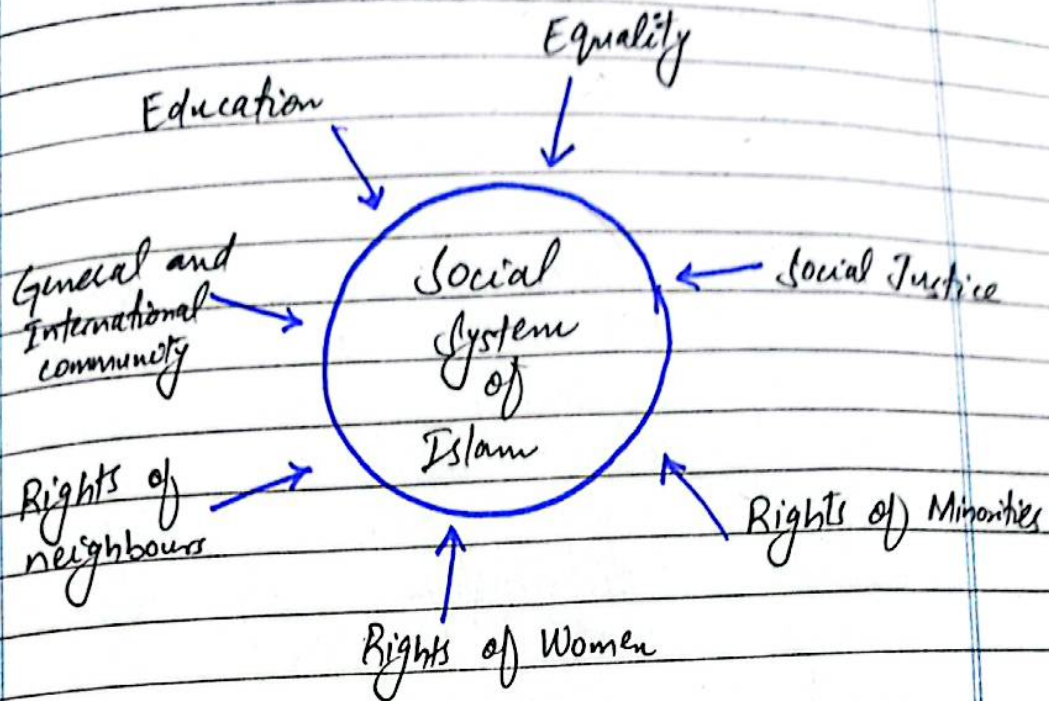 Equality
Education
General and
International
community
Social
System
of
Islam
Social Justice
Rights of
neighbours
Rights of Minorities
Rights of Women